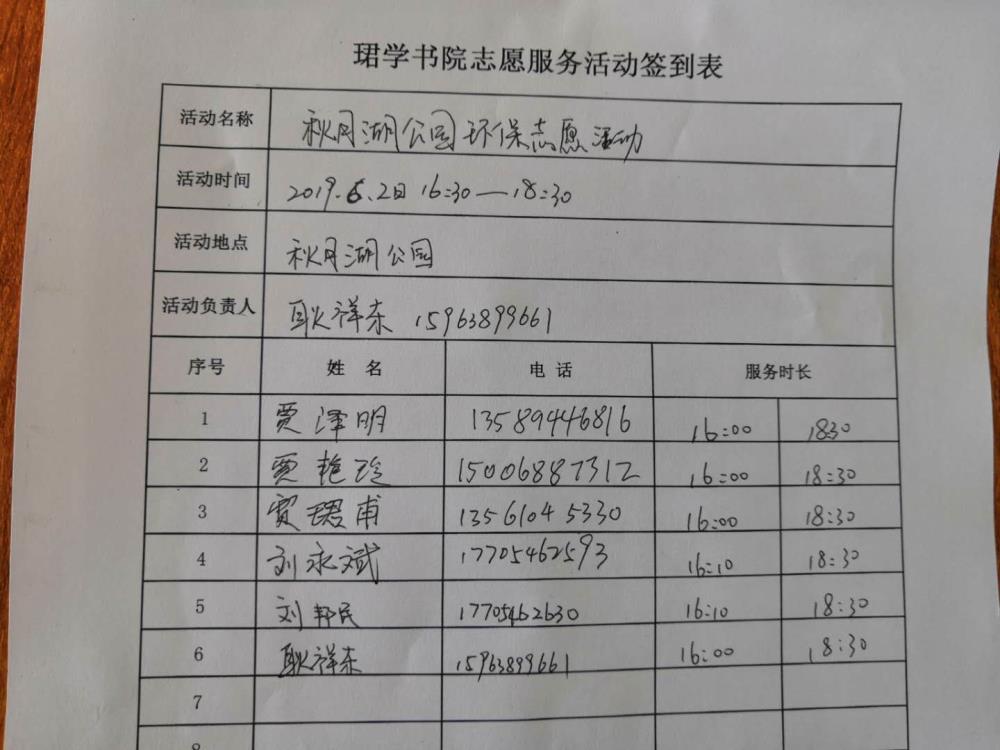 珺学书院志愿服务活动签到表
活动名称 秋月湖公园环保志愿活动
活动时间 2019.6.2日 16:30—18:30
活动地点 秋月湖公园
活动负责人 耿祥东 15963899661
序号 姓 名 电 话 服务时长
1 贾泽明 13589446816 16:00 18:30
2 贾艳玲 15006887312 16:00 18:30
3 贾珺甫 13561045330 16:00 18:30
4 刘永斌 17705462593 16:10 18:30
5 刘邦民 17705462630 16:10 18:30
6 耿祥东 15963899661 16:00 18:30
7
8